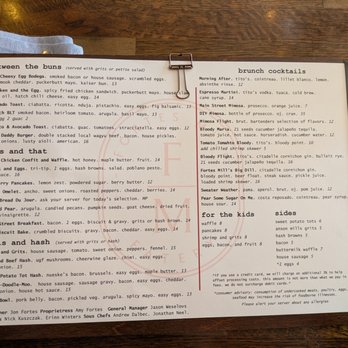 ween the buns (served with grits or potato salad)
Cheesy Egg Bodega. smoked bacon or house sausage. scrambled eggs.
ook cheddar. kaiser bun. 13
ken and the Egg. spicy fried chicken sandwich. packerbutt mayo. house
oil. hatch chili cheese. easy egg. 14
do Toast. ciabatta. ricotta. nduja. pistachio. easy eggs. fig balsamic. 13
BLT smoked bacon. heirloom tomato. arugula. basil mayo. 13
& Avocado Toast. ciabatta. guac. tomatoes. stracciatella. easy eggs. 12
Daddy Burger. double stacked local wagyu beef. bacon. house pickles.
onions. lusty violi. american. 16
s and that
Chicken Confit and Waffle. hot honey. maple butter. fruit. 14
and Eggs. tri-tip. 2 eggs. hash browns. salad. poblano pesto.
ce. 18
erry Pancakes. lemon zest. powdered sugar. berry butter. 12
Omelet. ancho. sweet onions. roasted peppers. cheddar. berries. 14
d Bread Du Jour. ask your server for today's selection. MP
Pear. arugula. candied pecans. pumpkin seeds. goat cheese. dried fruit.
vinaigrette. 12
Street Breakfast. bacon. 2 eggs. biscuit & gravy. grits or hash brown. 14
Biscuit Bake. crumbled biscuits. gravy. bacon. cheddar. easy eggs. 14
s and hash (served with grits or hash)
and Grits. house sausage. tomato. sweet onion. peppers. fennel. 15
Beef Hash. wgf mushrooms. cheerwine glaze. chimi. easy eggs.
Potato Tot Hash. nueske's bacon. brussels. easy eggs. maple butter. 13
-Doodle-Moo. house sausage. sausage gravy. bacon. easy eggs. cheddar.
nion. house hot sauce. 13
Bowl. pork belly. bacon. pickled veg. arugula. spicy mayo. easy eggs. 13
ner Jon Fortes Proprietress Amy Fortes General Manager Jason Weselous
Nick Kuszczak. Erinn Winters Sous Chefs Andrew Dalbec, Jonathan Neel.
brunch cocktails
Morning After. tito's. cointreau. lillet blanc. lemon.
absinthe rinse. 12
Espresso Martini. tito's vodka. tuaca. cold brew.
cane syrup. 14
Main Street Mimosa. prosecco. orange juice. 7
DIY Mimosa. bottle of prosecco. oj. 23
Mimosa Flight. brut. bartenders selection of flavors. 12
Bloody Maria. 21 seeds cucumber jalapeño tequila.
tomato juice. hot sauce. horseradish. cucumber water. 12
Tomato Tomahto Bloody. tito's. bloody point. 10
add chilled shrimp skewer 5
Bloody Flight. tito's. citadelle cornichon gin. bulleit rye.
21 seeds cucumber jalapeño tequila. 16
Fortes Mill's Big Dill. citadelle cornichon gin.
bloody point. beer float. steak sauce. pickle juice.
loaded shrimp skewer 16
Sweater Weather. pama. aperol. brut. oj. pom juice. 12
Pear Some Sugar On Me. costa reposado. cointreau. pear puree
house sour 13
for the kids
waffle 8
pancakes 8
shrimp and grits 8
eggs, bacon, and fruit 8
sides
sweet potato tots 6
anson mills grits 3
hash browns 3
bacon 5
buttermilk waffle 7
house sausage 5
*2 eggs 4
*if you use a credit card, we will charge an additional 3% to help
offset processing costs. this amount is not more than what we pay in
fees. we do not surcharge debit cards.*
*consumer advisory: consumption of undercooked meats, poultry, eggs,
seafood may increase the risk of foodborne illnesses.
Please alert your server about any allergies